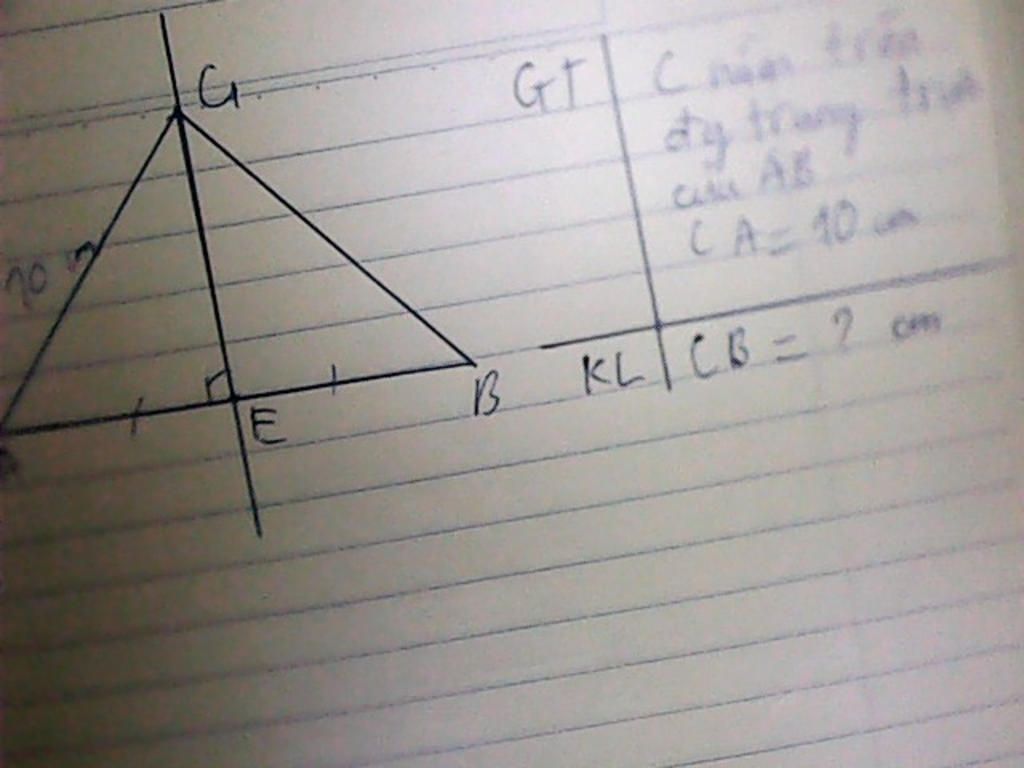 G
10 cm
A
E
B
GT
C nằm trên
đg trung trực
của AB
CA = 10 cm
KL
CB = ? cm